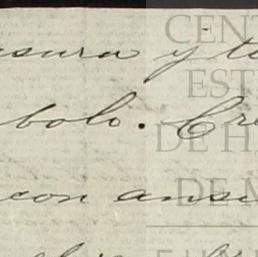 asura y te
bolo. Cre
con ansi
CENT
EST
DE H
DE M